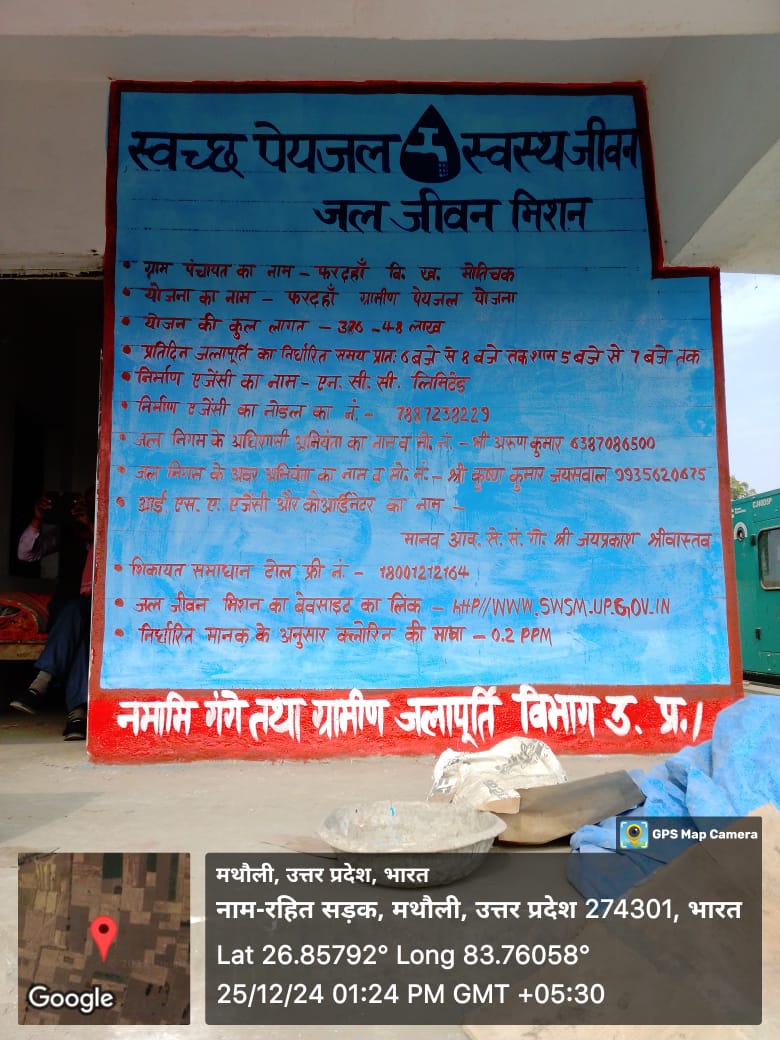 स्वच्छ पेयजल स्वस्थ जीवन
जल जीवन मिशन
• ग्राम पंचायत का नाम – फरदहाँ वि. ख. मोतिचक
• योजना का नाम – फरदहाँ ग्रामीण पेयजल योजना
• योजन की कुल लागत – 326 -48 लाख
• प्रतिदित जलापूर्ति का निर्धारित समय प्रात: 6 बजे से 8 बजे तक शाम 5 बजे से 7 बजे तक
• निर्माण एजेंसी का नाम – एन. सी. सी. लिमिटेड
• निर्माण एजेंसी का नोडल का नं. - 7887238229
• जल निगम के अधिशासी अभियंता का नाम व मो. नं. - श्री अरुण कुमार 6387086500
• जल निगम के अवर अभियंता का नाम व मो. नं. - श्री कृष्ण कुमार जयसवाल 9935620675
• आई. एस. ए. एजेंसी और कोआर्डिनेटर का नाम –
मानव आव. से. सं. गो. श्री जयप्रकाश श्रीवास्तव
• शिकायत समाधान टोल फ्री नं. - 18001212164
• जल जीवन मिशन का बेवसाइट का लिंक – http//WWW.SWSM.UP.GOV.IN
• निर्धारित मानक के अनुसार क्लोरिन की मात्रा – 0.2 PPM
नमामि गंगे तथा ग्रामीण जलापूर्ति विभाग उ. प्र.।
GPS Map Camera
मथौली, उत्तर प्रदेश, भारत
नाम-रहित सड़क, मथौली, उत्तर प्रदेश 274301, भारत
Lat 26.85792° Long 83.76058°
25/12/24 01:24 PM GMT +05:30
Google